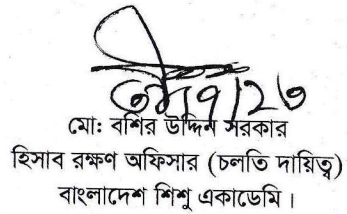 মো: বশির উদ্দিন সরকার
হিসাব রক্ষণ অফিসার (চলতি দায়িত্ব)
বাংলাদেশ শিশু একাডেমি।